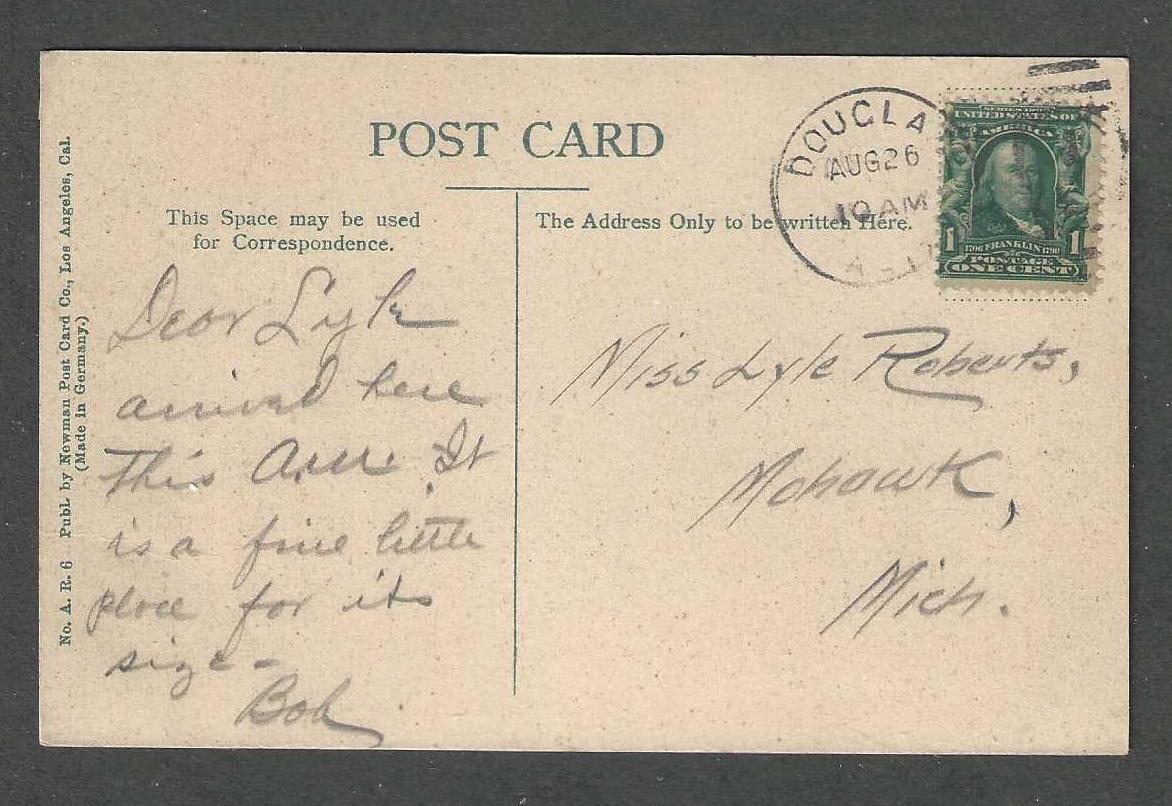 POST CARD
This Space may be used
for Correspondence.
The Address Only to be written Here.
DOUGLA
AUG 26
10 AM
SERIES 1902
UNITED STATES OF
AMERICA
1 1706 FRANKLIN 1790 1
POSTAGE
ONE CENT
No. A. R. 6 Publ. by Newman Post Card Co., Los Angeles, Cal.
(Made in Germany.)
Dear Lyle
arrived here
This A.M. It
is a fine little
place for its
size -
Bob
Miss Lyle Roberts,
Mohawk,
Mich.